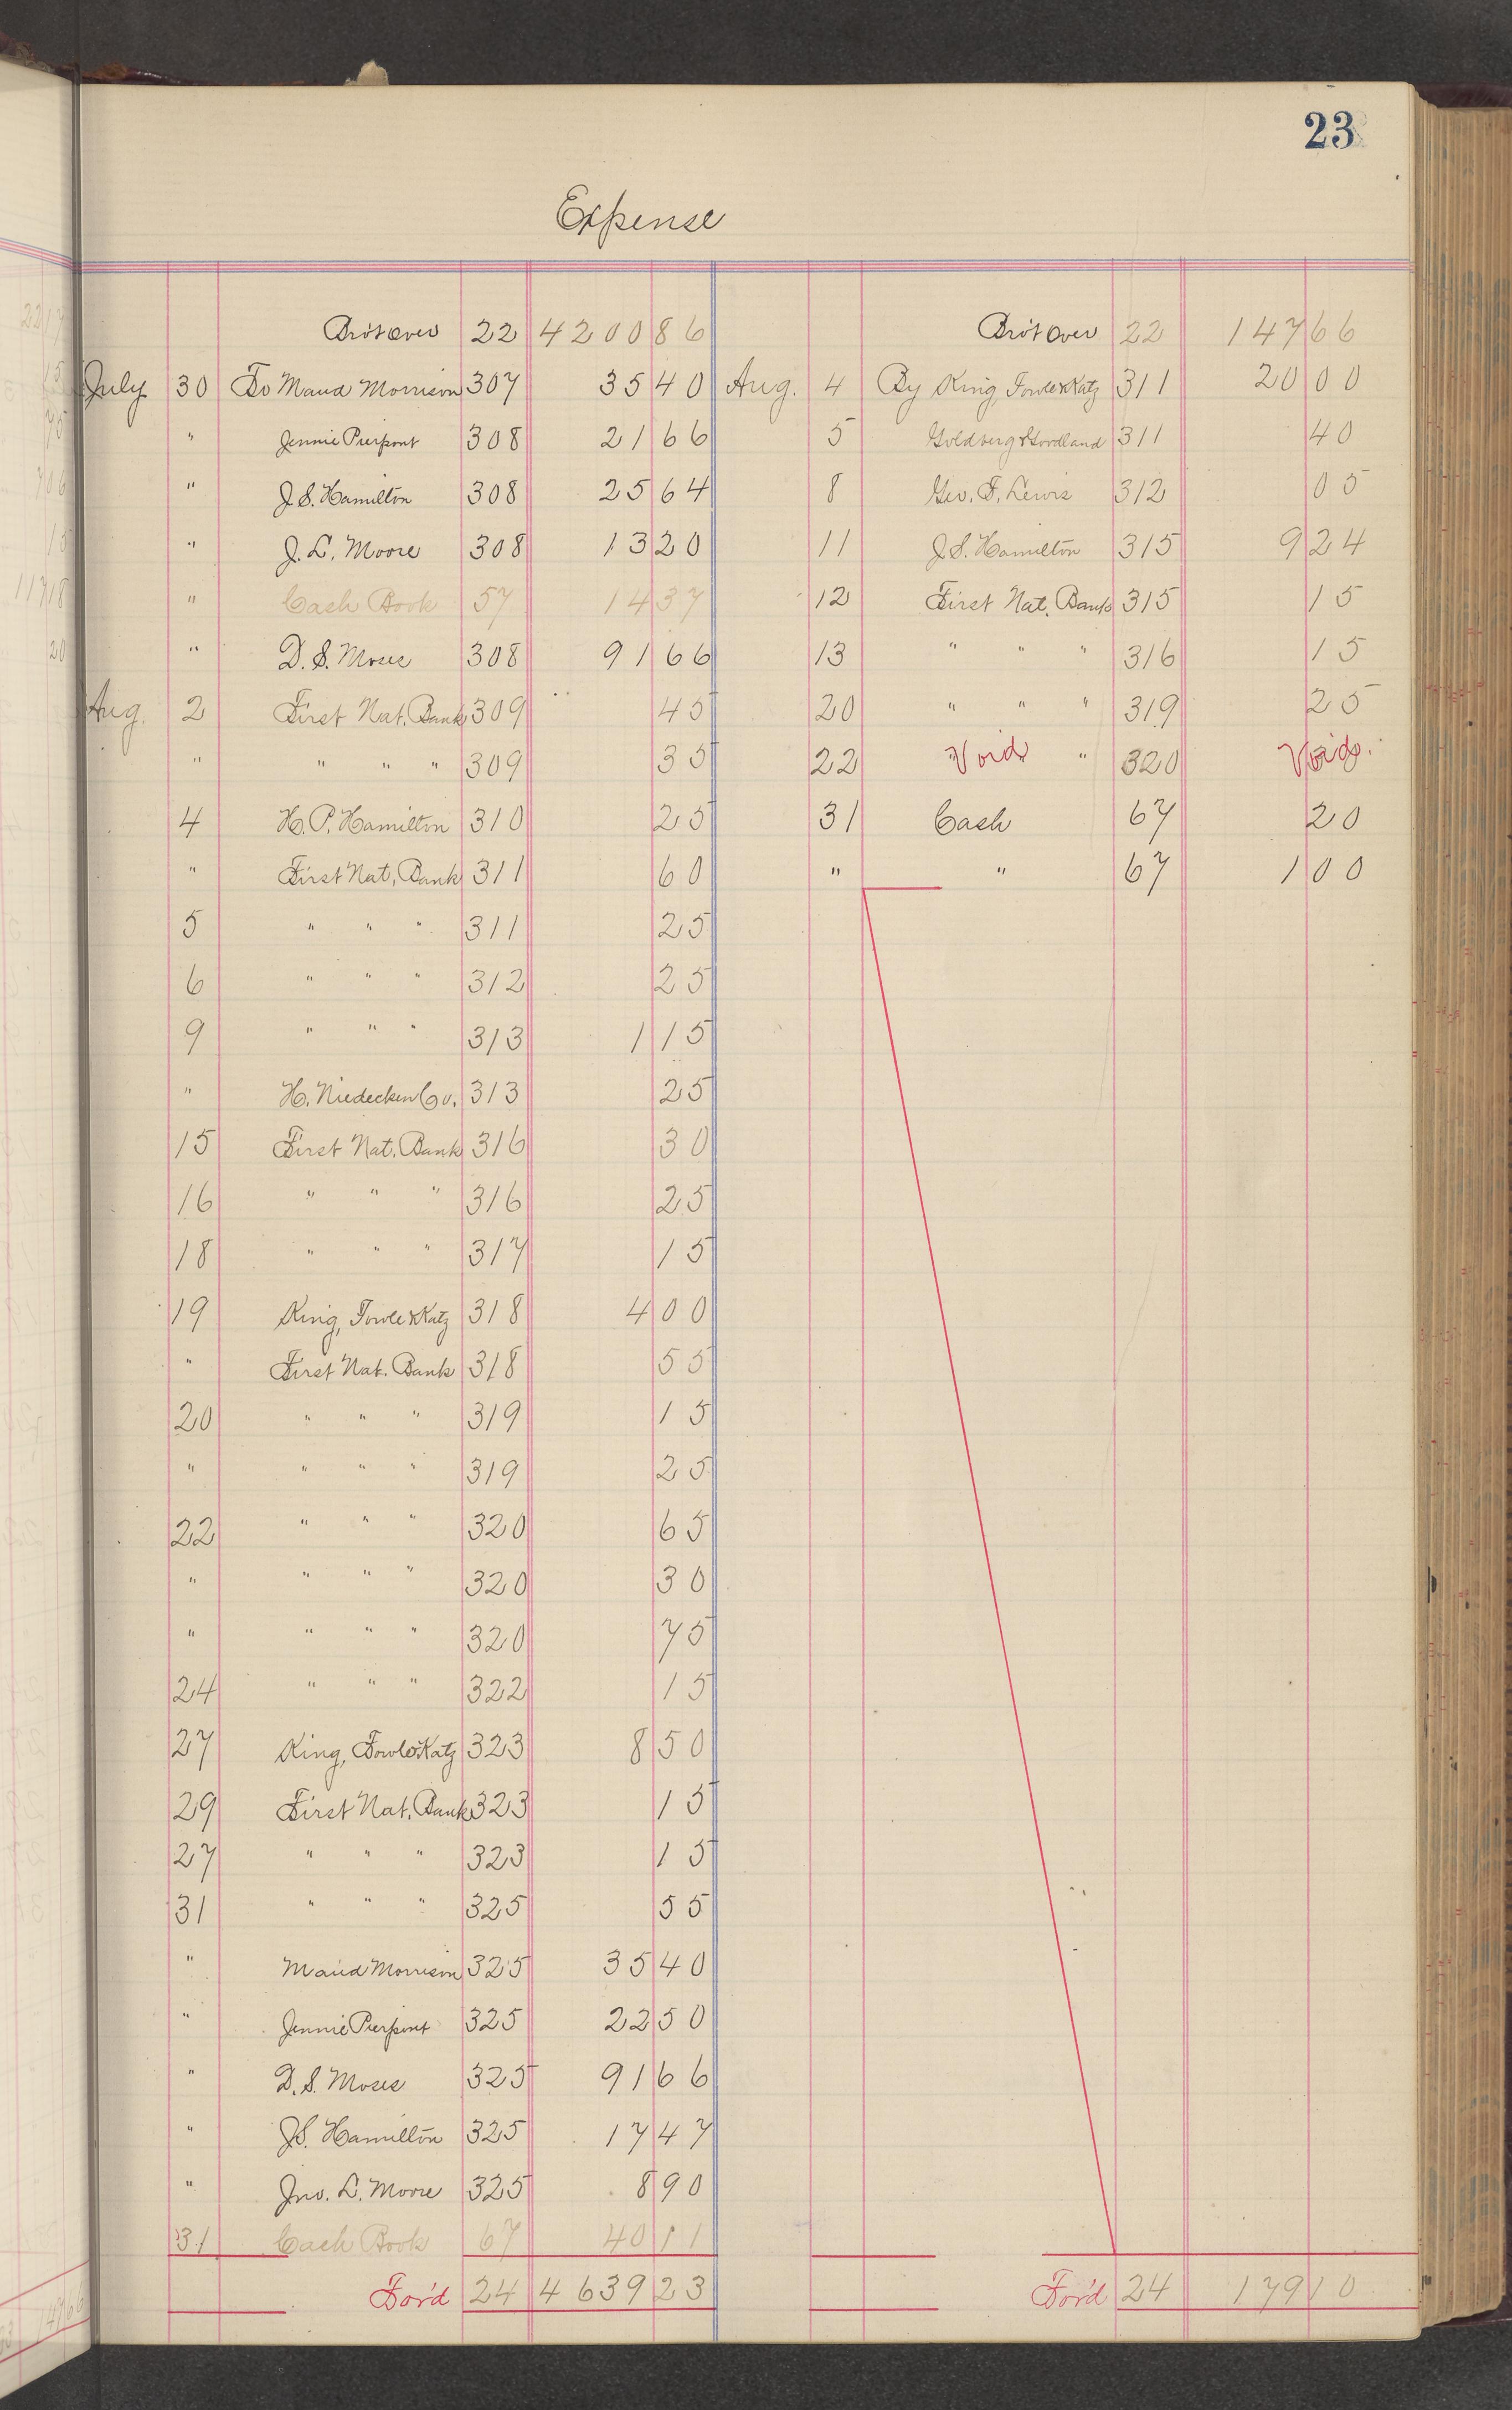 23
Expense
Bro't over 22 4200 86 Bro't over 22 147 66
July 30 To Maud Morrison 307 35 40 Aug. 4 By King, Fowle & Katz 311 20 00
" Jennie Pierpont 308 21 66 5 Goldberg & Goodland 311 40
" J. S. Hamilton 308 25 64 8 Geo. F. Lewis 312 05
" J. L. Moore 308 13 20 11 J. S. Hamilton 315 9 24
" Cash Book 57 14 37 12 First Nat. Bank 315 15
" D. S. Moses 308 91 66 13 " " " 316 15
Aug. 2 First Nat. Bank 309 45 20 " " " 319 25
" " " " 309 35 22 Void " 320 Void.
4 H. P. Hamilton 310 25 31 Cash 67 20
" First Nat. Bank 311 60 " " 67 1 00
5 " " " 311 25
6 " " " 312 25
9 " " " 313 1 15
" H. Niedecken Co. 313 25
15 First Nat. Bank 316 30
16 " " " 316 25
18 " " " 317 15
19 King, Fowle & Katz 318 4 00
" First Nat. Bank 318 55
20 " " " 319 15
" " " " 319 25
22 " " " 320 65
" " " " 320 30
" " " " 320 75
24 " " " 322 15
27 King, Fowle & Katz 323 8 50
29 First Nat. Bank 323 15
27 " " " 323 15
31 " " " 325 55
" Maud Morrison 325 35 40
" Jennie Pierpont 325 22 50
" D. S. Moses 325 91 66
" J. S. Hamilton 325 17 47
" Jno. L. Moore 325 8 90
31 Cash Book 67 40 11
For'd 24 4639 23 For'd 24 179 10